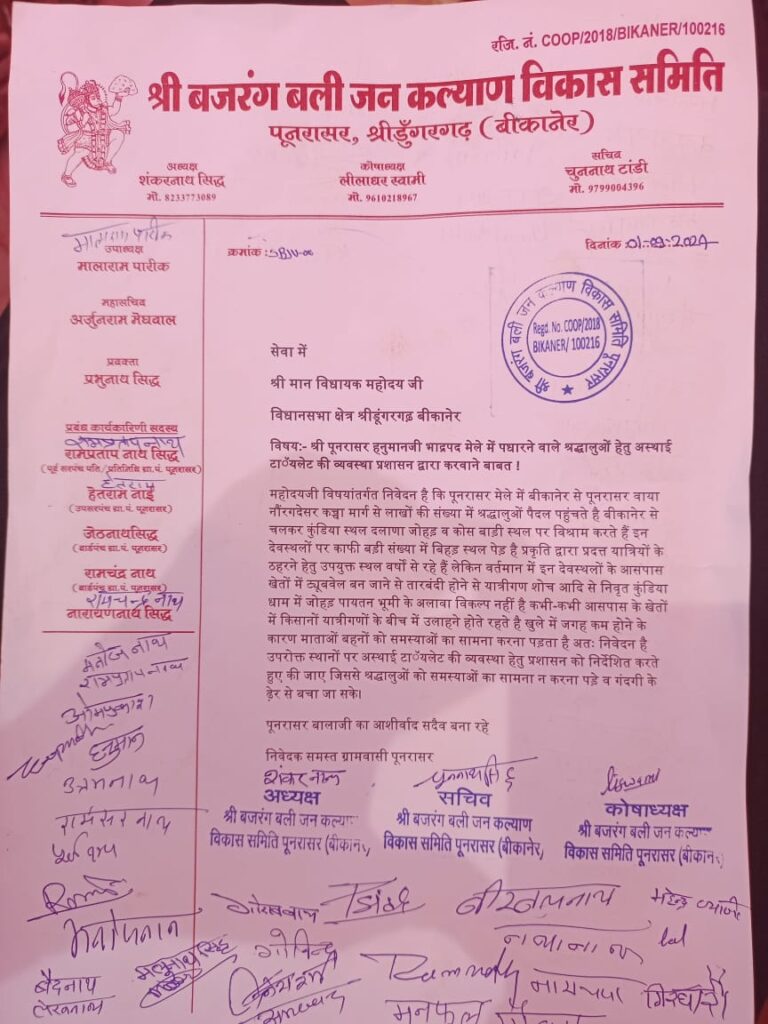 रजि. नं. COOP/2018/BIKANER/100216
श्री बजरंग बली जन कल्याण विकास समिति
पूनरासर, श्रीडुँगरगढ़ (बीकानेर)
अध्यक्ष
शंकरनाथ सिद्ध
मो. 8233773089
कोषाध्यक्ष
लीलाधर स्वामी
मो. 9610218967
सचिव
चुननाथ टांडी
मो. 9799004396
मालाराम पारीक
उपाध्यक्ष
मालाराम पारीक
महासचिव
अर्जुनराम मेघवाल
प्रवक्ता
प्रभुनाथ सिद्ध
प्रबंध कार्यकारिणी सदस्य
रामप्रताप नाथ
रामप्रताप नाथ सिद्ध
(पूर्व सरपंच पति/प्रतिनिधि ग्रा.पं. पूनरासर)
हेतराम
हेतराम नाई
(उपसरपंच ग्रा.पं. पूनरासर)
जेठनाथसिद्ध
(वार्डपंच ग्रा.पं. पूनरासर)
रामचंद्र नाथ
(वार्डपंच ग्रा.पं. पूनरासर)
रामचन्द्र नाथ
नारायणनाथ सिद्ध
क्रमांक :
दिनांक :01-09-2024
श्री बजरंग बली जन कल्याण विकास समिति पूनरासर
Regd. No. COOP/2018
BIKANER/ 100216
सेवा में
श्री मान विधायक महोदय जी
विधानसभा क्षेत्र श्रीडूंगरगढ़ बीकानेर
विषय:- श्री पूनरासर हनुमानजी भाद्रपद मेले में पधारने वाले श्रद्धालुओं हेतु अस्थाई
टाॅयलेट की व्यवस्था प्रशासन द्वारा करवाने बाबत !
महोदयजी विषयांतर्गत निवेदन है कि पूनरासर मेले में बीकानेर से पूनरासर वाया
नौंरगदेसर कच्चा मार्ग से लाखों की संख्या में श्रद्धालुओं पैदल पहुंचते है बीकानेर से
चलकर कुंडिया स्थल दलाणा जोहड़ व कोस बाड़ी स्थल पर विश्राम करते हैं इन
देवस्थलों पर काफी बड़ी संख्या में बिहड़ स्थल पेड़ है प्रकृति द्वारा प्रदत्त यात्रियों के
ठहरने हेतु उपयुक्त स्थल वर्षों से रहे हैं लेकिन वर्तमान में इन देवस्थलों के आसपास
खेतों में ट्यूबवेल बन जाने से तारबंदी होने से यात्रीगण शोच आदि से निवृत कुंडिया
धाम में जोहड़ पायतन भूमी के अलावा विकल्प नहीं है कभी-कभी आसपास के खेतों
में किसानों यात्रीगणों के बीच में उलाहने होते रहते है खुले में जगह कम होने के
कारण माताओं बहनों को समस्याओं का सामना करना पड़ता है अतः निवेदन है
उपरोक्त स्थानों पर अस्थाई टाॅयलेट की व्यवस्था हेतु प्रशासन को निर्देशित करते
हुए की जाए जिससे श्रद्धालुओं को समस्याओं का सामना न करना पड़े व गंदगी के
ढ़ेर से बचा जा सके।
पूनरासर बालाजी का आशीर्वाद सदैव बना रहे
निवेदक समस्त ग्रामवासी पूनरासर
शंकर नाथ
अध्यक्ष
श्री बजरंग बली जन कल्या
विकास समिति पूनरासर (बीकाने
सचिव
श्री बजरंग बली जन कल्याण
विकास समिति पूनरासर (बीकानेर)
कोषाध्यक्ष
श्री बजरंग बली जन कल्या
विकास समिति पूनरासर (बीकाने
मनोज नाथ
हनुमान
उत्तमनाथ
गोरखनाथ
गोविन्द
बैदनाथ
लेखनाथ
मनफूल
गिरधारी